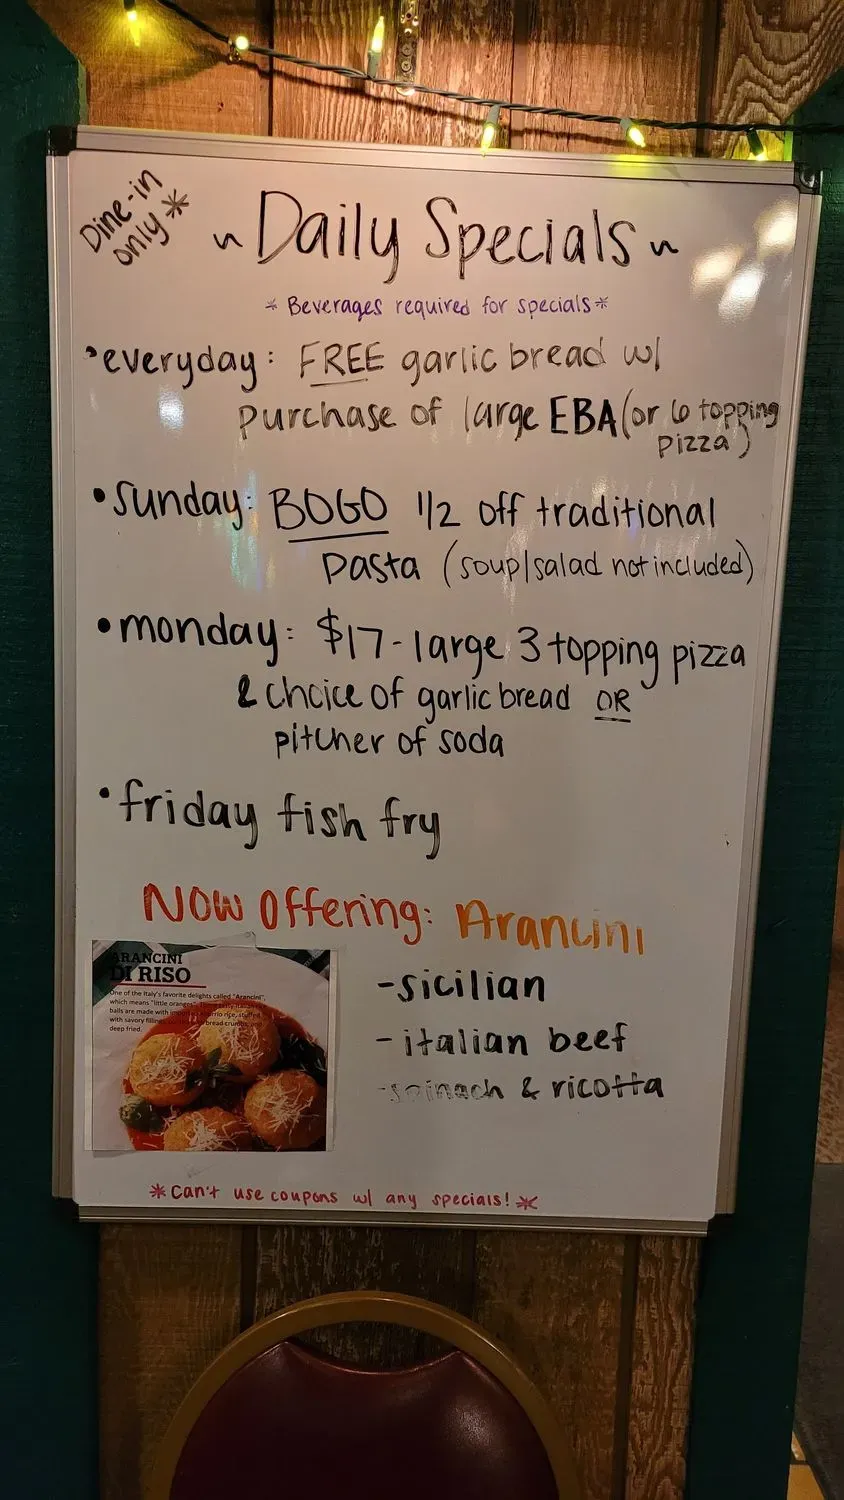 Dine-in
only *
~ Daily Specials ~
* Beverages required for specials *
• everyday: FREE garlic bread w/
purchase of large EBA (or 6 topping
pizza)
• Sunday: BOGO 1/2 off traditional
pasta (soup/salad not included)
• monday: $17 - large 3 topping pizza
& choice of garlic bread OR
pitcher of soda
• friday fish fry
NOW Offering: Arancini
ARANCINI
DI RISO
One of the Italy's favorite delights called "Arancini",
which means "little oranges".
balls are made with rice, stuffed
with savory bread crumbs, and
deep fried.
- sicilian
- italian beef
- spinach & ricotta
* Can't use coupons w/ any specials! *